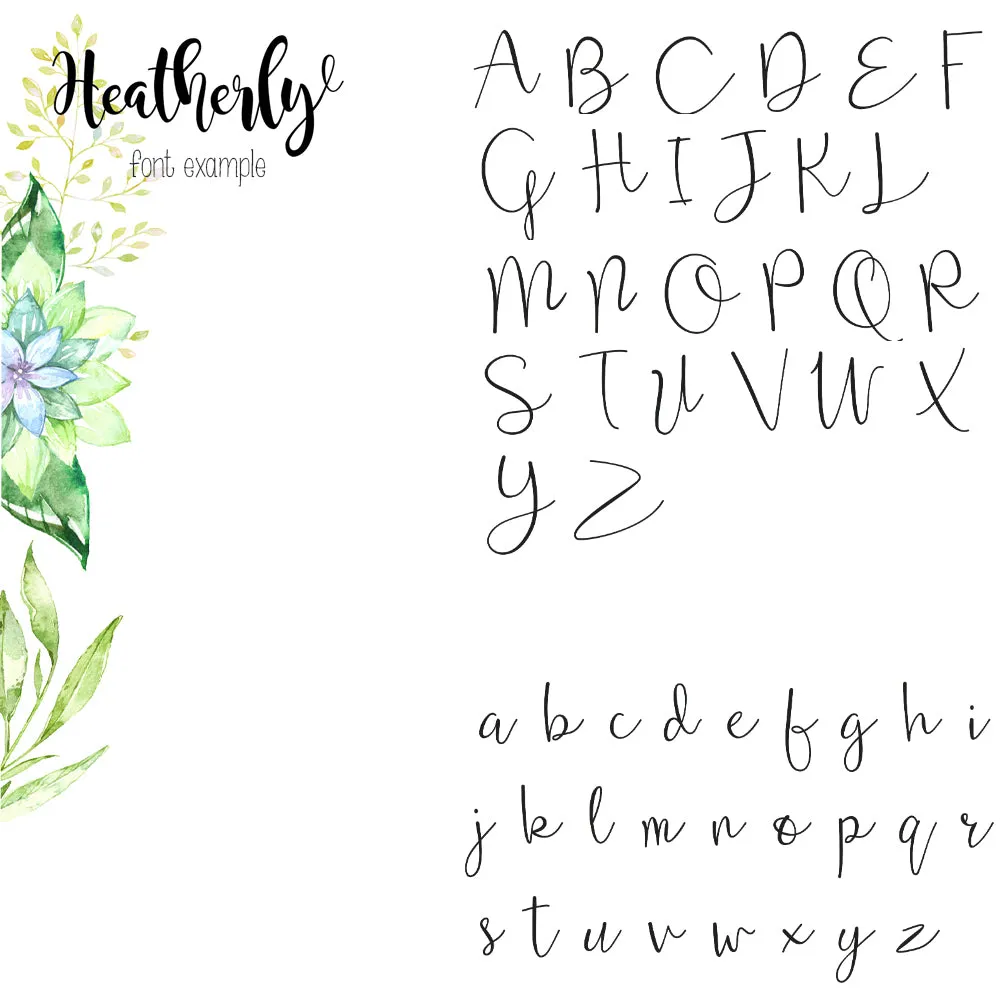 Heatherly
font example
A B C D E F
G H I J K L
M N O P Q R
S T U V W X
Y Z
a b c d e f g h i
j k l m n o p q r
s t u v w x y z